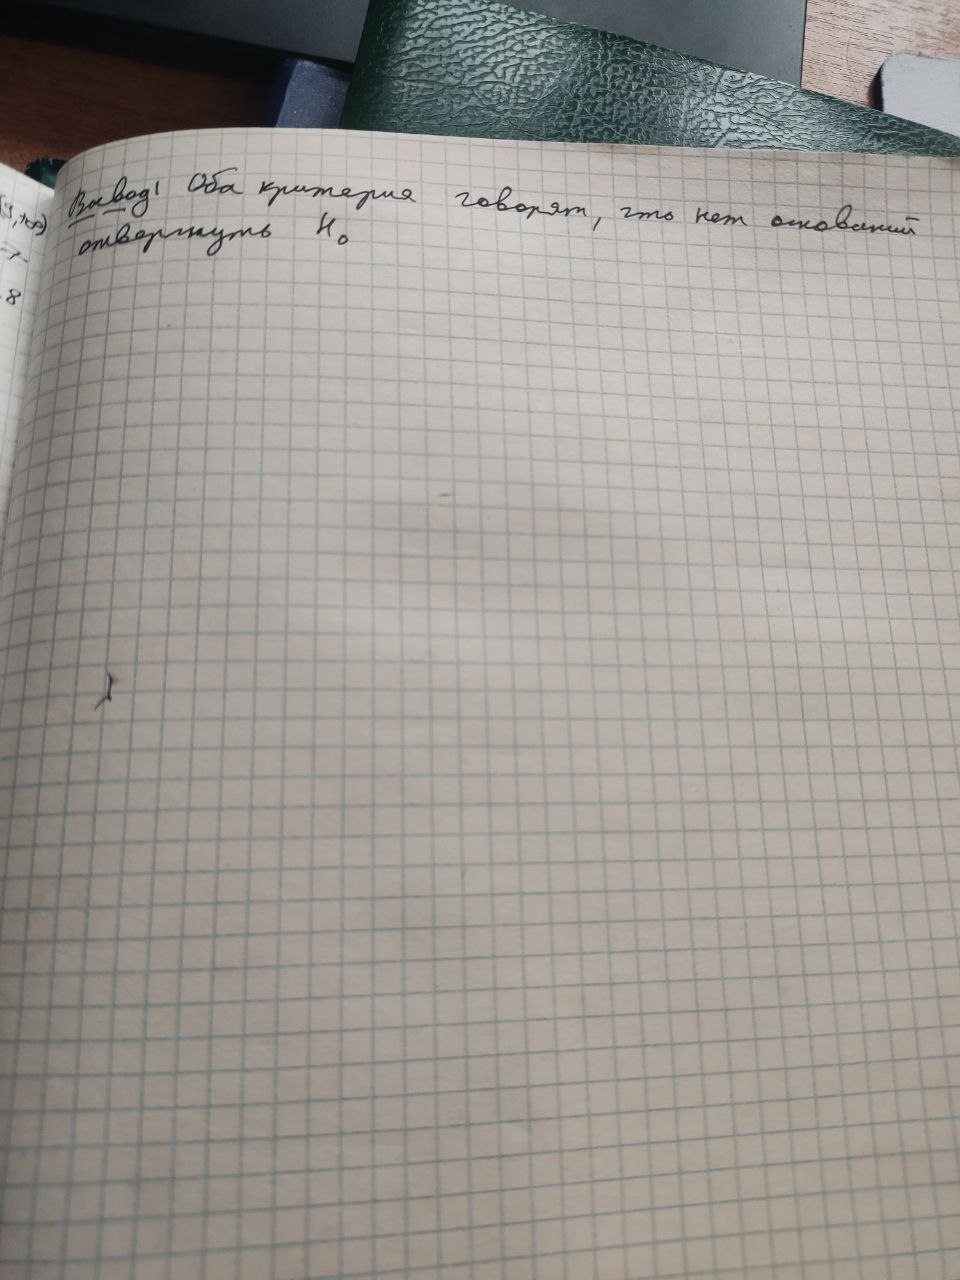 Вывод: Оба критерия говорят, что нет оснований
отвергнуть H₀
8